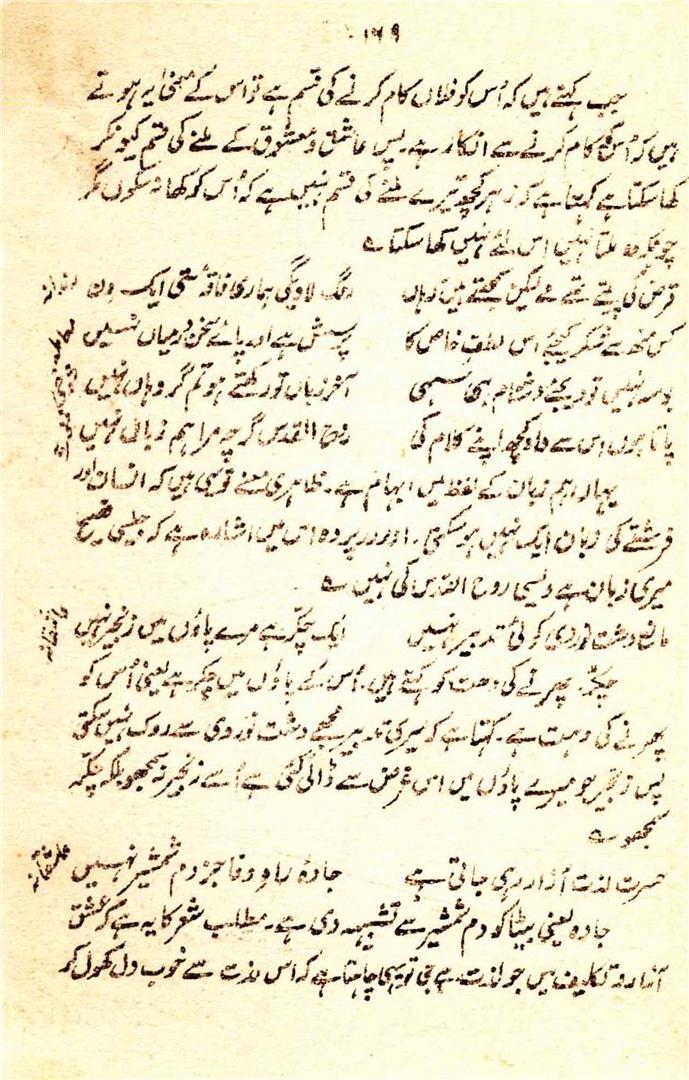 ۱۶۹
جب کہتے ہیں کہ اُس کو فلاں کام کرنے کی قسم ہے تو اس کے معنی یہ ہوتے
ہیں کہ اُس کو کام کرنے سے انکار ہے۔ پس عاشق و معشوق کے ملنے کی قسم کیونکر
کھا سکتا ہے کہتا ہے کہ زہر کچھ تیرے ملنے کی قسم نہیں ہے کہ اُس کو کھا نہ سکوں مگر
چونکہ وہ ملتا نہیں اس لئے نہیں کھا سکتا ے
قرض کی پیتے تھے مے لیکن سمجھتے ہیں کہ ہاں رنگ لاویگی ہماری فاقہ مستی ایک دن رندانہ
کس منہ سے شکر کیجئے اس لطف خاص کا پرسش ہے اور پائے سخن درمیاں نہیں
بوسہ نہیں تو دیجئے دشنام ہی سہی آخر زباں تو رکھتے ہو تم گر دہاں نہیں
پاتا ہوں اس سے داد کچھ اپنے کلام کی روح القدس گرچہ مرا ہم زباں نہیں
یہاں ہم زبان کے لفظ میں ابہام ہے۔ ظاہری معنے تو یہی ہیں کہ انسان اور
فرشتے کی زبان ایک نہیں ہو سکتی۔ اور در پردہ اس میں اشارہ ہے کہ جیسی فصیح
میری زبان ہے ویسی روح القدس کی نہیں ے
مانع دشت نوردی کوئی تدبیر نہیں ایک چکّر ہے مرے پاؤں میں زنجیر نہیں عاشقانہ
چکّر۔ پھرنے کی دھت کو کہتے ہیں۔ اُس کے پاؤں میں چکر ہے یعنی اُس کو
پھرنے کی دہت ہے۔ کہتا ہے کہ میری تدبیر مجھے دشت نوردی سے روک نہیں سکتی
پس زنجیر جو میرے پاؤں میں اس غرض سے ڈالی گئی ہے اُسے زنجیر نہ سمجھو بلکہ چکّر
سمجھو ے
حسرت لذت آزار رہی جاتی ہے جادۂ راہِ وفا جز دم شمشیر نہیں عاشقانہ
جادہ یعنی بٹیا کو دم شمشیر سے تشبیہہ دی ہے۔ مطلب شعر کا یہ ہے کہ عشق
آزار و تکلیف میں جو لذت ہے جی تو یہی چاہتا ہے کہ اس لذت سے خوب دل کھول کر